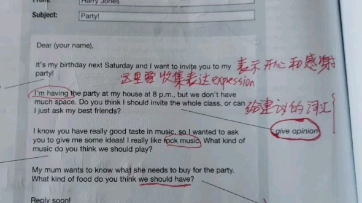 From: Harry Jones
Subject: Party!
Dear (your name),
It's my birthday next Saturday and I want to invite you to my 表示开心和感谢
party! 这里要收集表达expession
I'm having the party at my house at 8 p.m., but we don't have
much space. Do you think I should invite the whole class, or can 给建议的词汇
I just ask my best friends?
I know you have really good taste in music, so I wanted to ask give opinion
you to give me some ideas! I really like rock music. What kind of
music do you think we should play?
My mum wants to know what she needs to buy for the party.
What kind of food do you think we should have?
Reply soon!